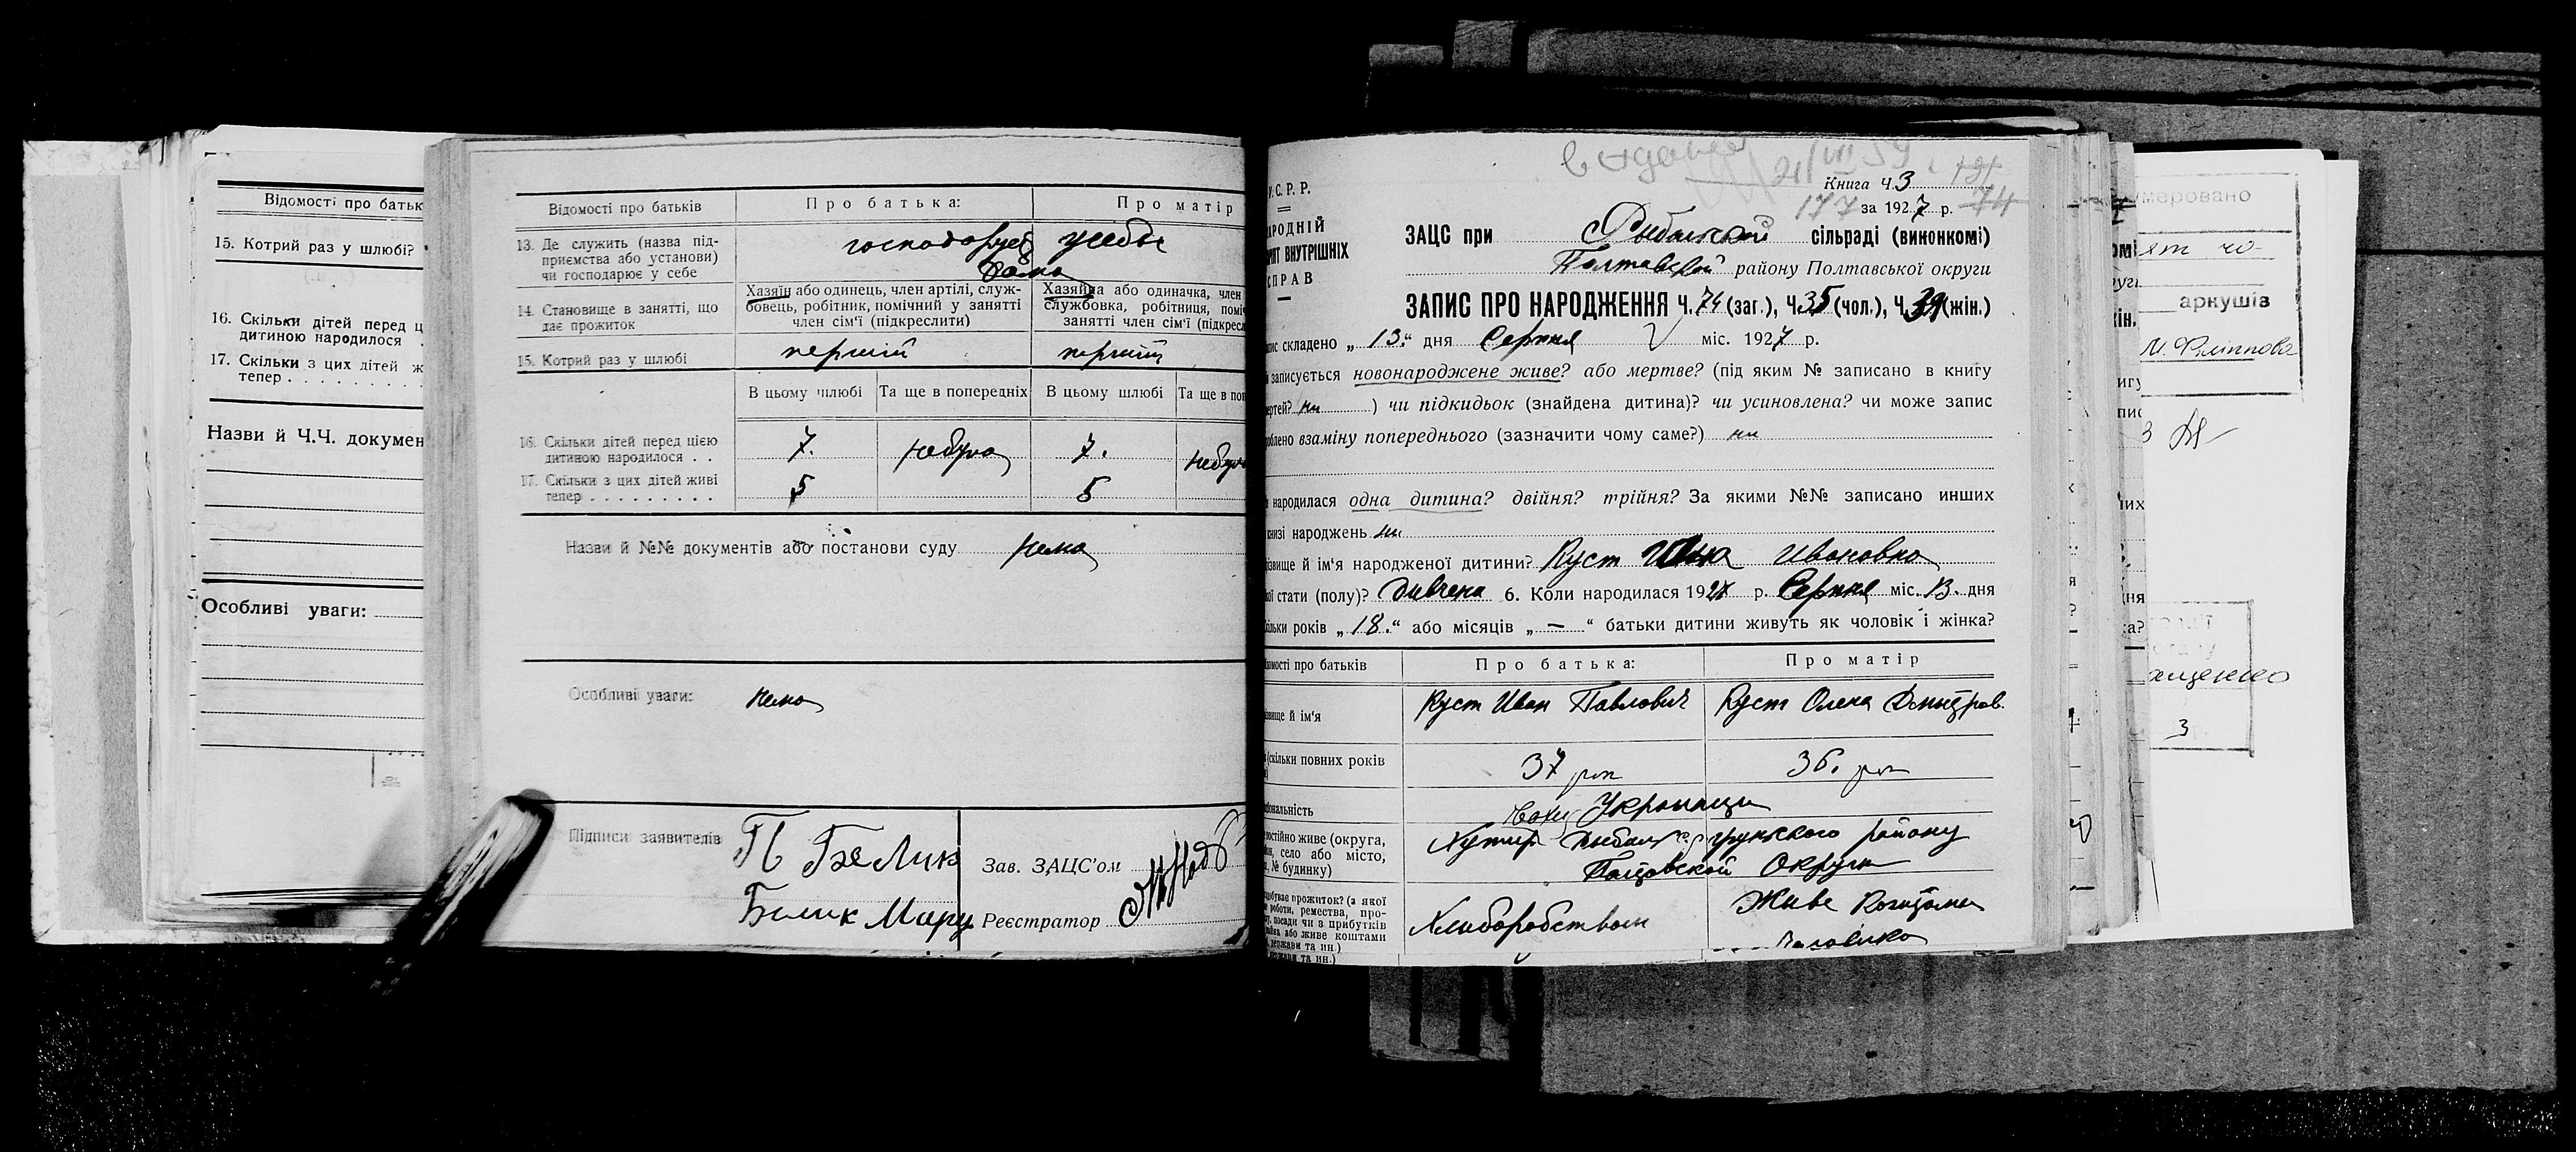 Відомості про батьк
15. Котрий раз у шлюбі?
16. Скільки дітей перед ц
дитиною народилося
17. Скільки з цих дітей ж
тепер
Назви й Ч.Ч. докумен
Особливі уваги:
Відомості про батьків
Про батька:
Про матір
13. Де служить (назва під-
приємства або установи)
чи господарює у себе
господарує усебе
дома
14. Становище в занятті, що
дає прожиток
Хазяїн або одинець, член артілі, служ-
бовець, робітник, помічний у занятті
член сім'ї (підкреслити)
Хазяйна або одиначка, член
службовка, робітниця, поміч
занятті член сім'ї (підкресл
15. Котрий раз у шлюбі
першій
першій
В цьому шлюбі
Та ще в попередніх
В цьому шлюбі
Та ще в поп
16. Скільки дітей перед цією
дитиною народилося
7.
небуло
7.
небуло
17. Скільки з цих дітей живі
тепер
5
5
Назви й №№ документів або постанови суду нема
Особливі уваги: нема
Підписи заявителів
П Белик
Белик Мару
Зав. ЗАЦС'ом
Реєстратор
У.С.Р.Р.
АРОДНІЙ
РІЯТ ВНУТРІШНІХ
СПРАВ
21/VII 59
Книга Ч. 3
177
за 1927 р.
74
ЗАЦС при Рыбальской сільраді (виконкомі)
Полтавской району Полтавської округи
ЗАПИС ПРО НАРОДЖЕННЯ Ч. 74 (заг.), Ч. 35 (чол.), Ч. 39 (жін.)
пис складено „ 13 " дня Серпня міс. 1927 р.
записується новонароджене живе? або мертве? (під яким № записано в книгу
ертей? ни ) чи підкидьок (знайдена дитина)? чи усиновлена? чи може запис
облено взаміну попереднього (зазначити чому саме?) ни
народилася одна дитина? двійня? трійня? За якими №№ записано инших
книзі народжень ни
ізвище й ім'я народженої дитини? Руст Ивановна
ої стати (полу)? Дивчена 6. Коли народилася 1927 р. Серпня міс. 13. дня
ільки років „ 18. " або місяців „ — " батьки дитини живуть як чоловік і жінка?
домості про батьків
Про батька:
Про матір
звище й ім'я
Руст Иван Павлович
Руст Олена Дмытров.
(скільки повних років
37 рок
36. рок
ціональність
Украинци
постійно живе (округа,
он, село або місто,
№ будинку)
Хутир Рыбал району
Полтавской Округи
Хлиборобством
Живе Коштами
Чоловика
умеровано
аркушів
М. Філіппова
3
ащенко
3